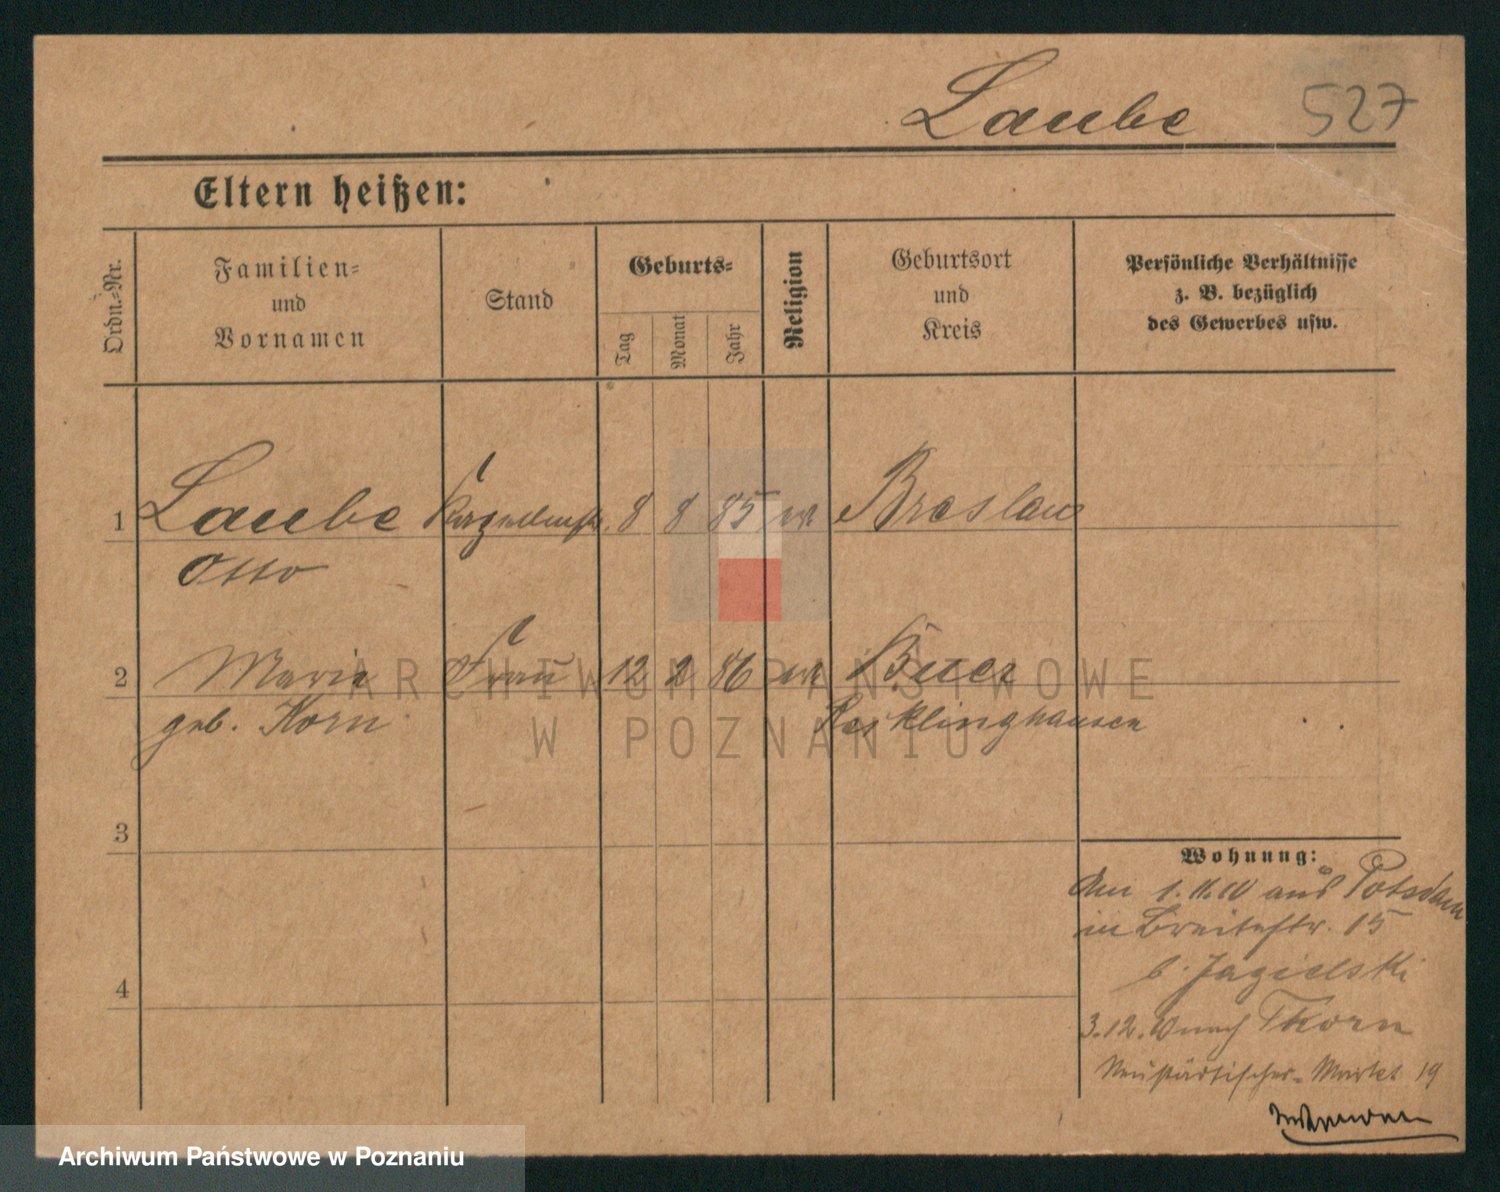 Laube 527
Eltern heißen:
Ordn.-Nr.
Familien-
und
Vornamen
Stand
Geburts-
Tag
Monat
Jahr
Religion
Geburtsort
und
Kreis
Persönliche Verhältnisse
z. B. bezüglich
des Gewerbes usw.
1 Laube 8 8 85 Breslau
Otto
2 Marie Frau 12 2 86 Buer
geb. Korn Recklinghausen
3
4
Wohnung:
Am 1.11.10 aus Potsdam
in Breitestr. 15
b. Jagielski
3.12.10 nach Thorn
Neustädtischer-Markt 19
ARCHIWUM PAŃSTWOWE
W POZNANIU
Archiwum Państwowe w Poznaniu